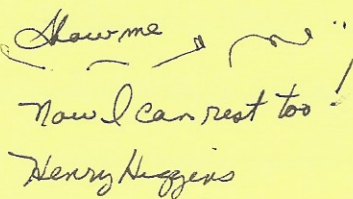 Show me
Now I can rest too!
Henry Higgins